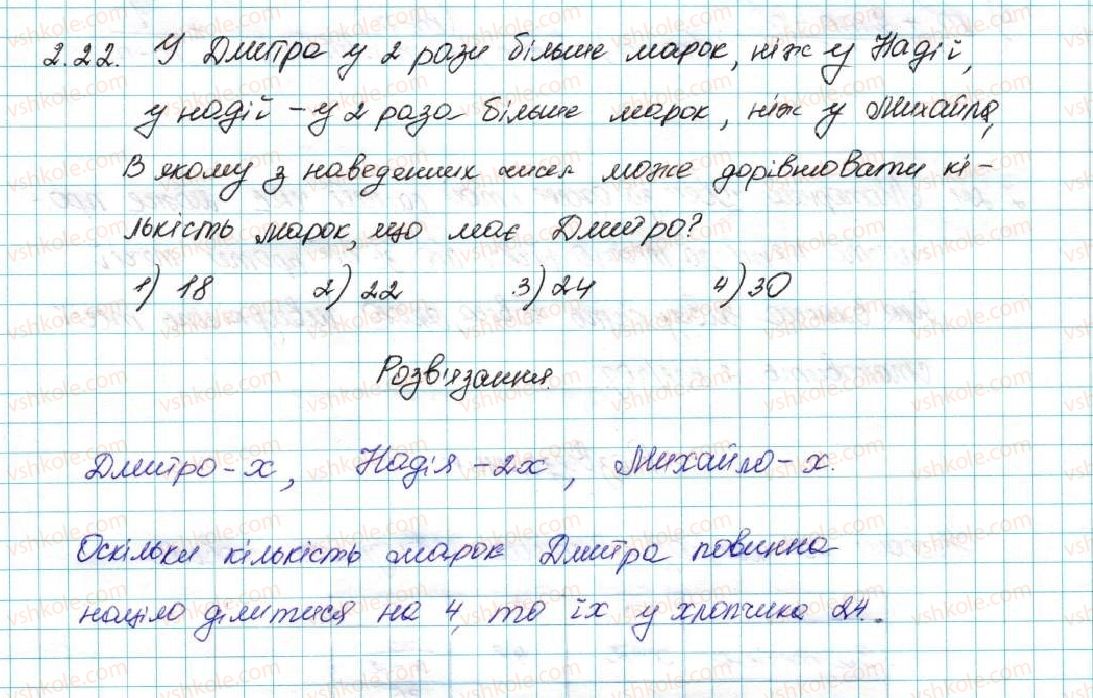 2.22. У Дмитра у 2 рази більше марок, ніж у Надії,
у надії - у 2 раза більше марок, ніж у Михайла,
В якому з наведенних чисел може дорівнювати кі-
лькість марок, що має Дмитро?
1) 18 2) 22 3) 24 4) 30
Розв'язання.
Дмитро - х, Надія - 2х, Михайло - х.
Оскільки кількість марок Дмитра повинна
націло ділитися на 4, то їх у хлопчика 24.